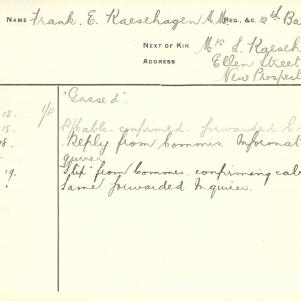 NAME Frank. E. Kaesehagen REG., &C. 12th Ba
NEXT OF KIN Mrs L. Kaeseh
ADDRESS Ellen Street
New Prospect
"Gassed".
18. 1/P
18. P/Cable confirmed. forwarded
18. Reply from Commns. Informat
given
19. Slip from Commns. confirming cab
Same forwarded Inquirer.